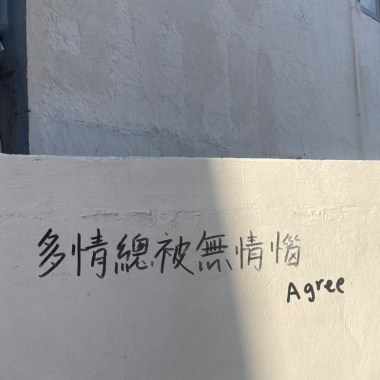 多情總被無情惱
Agree